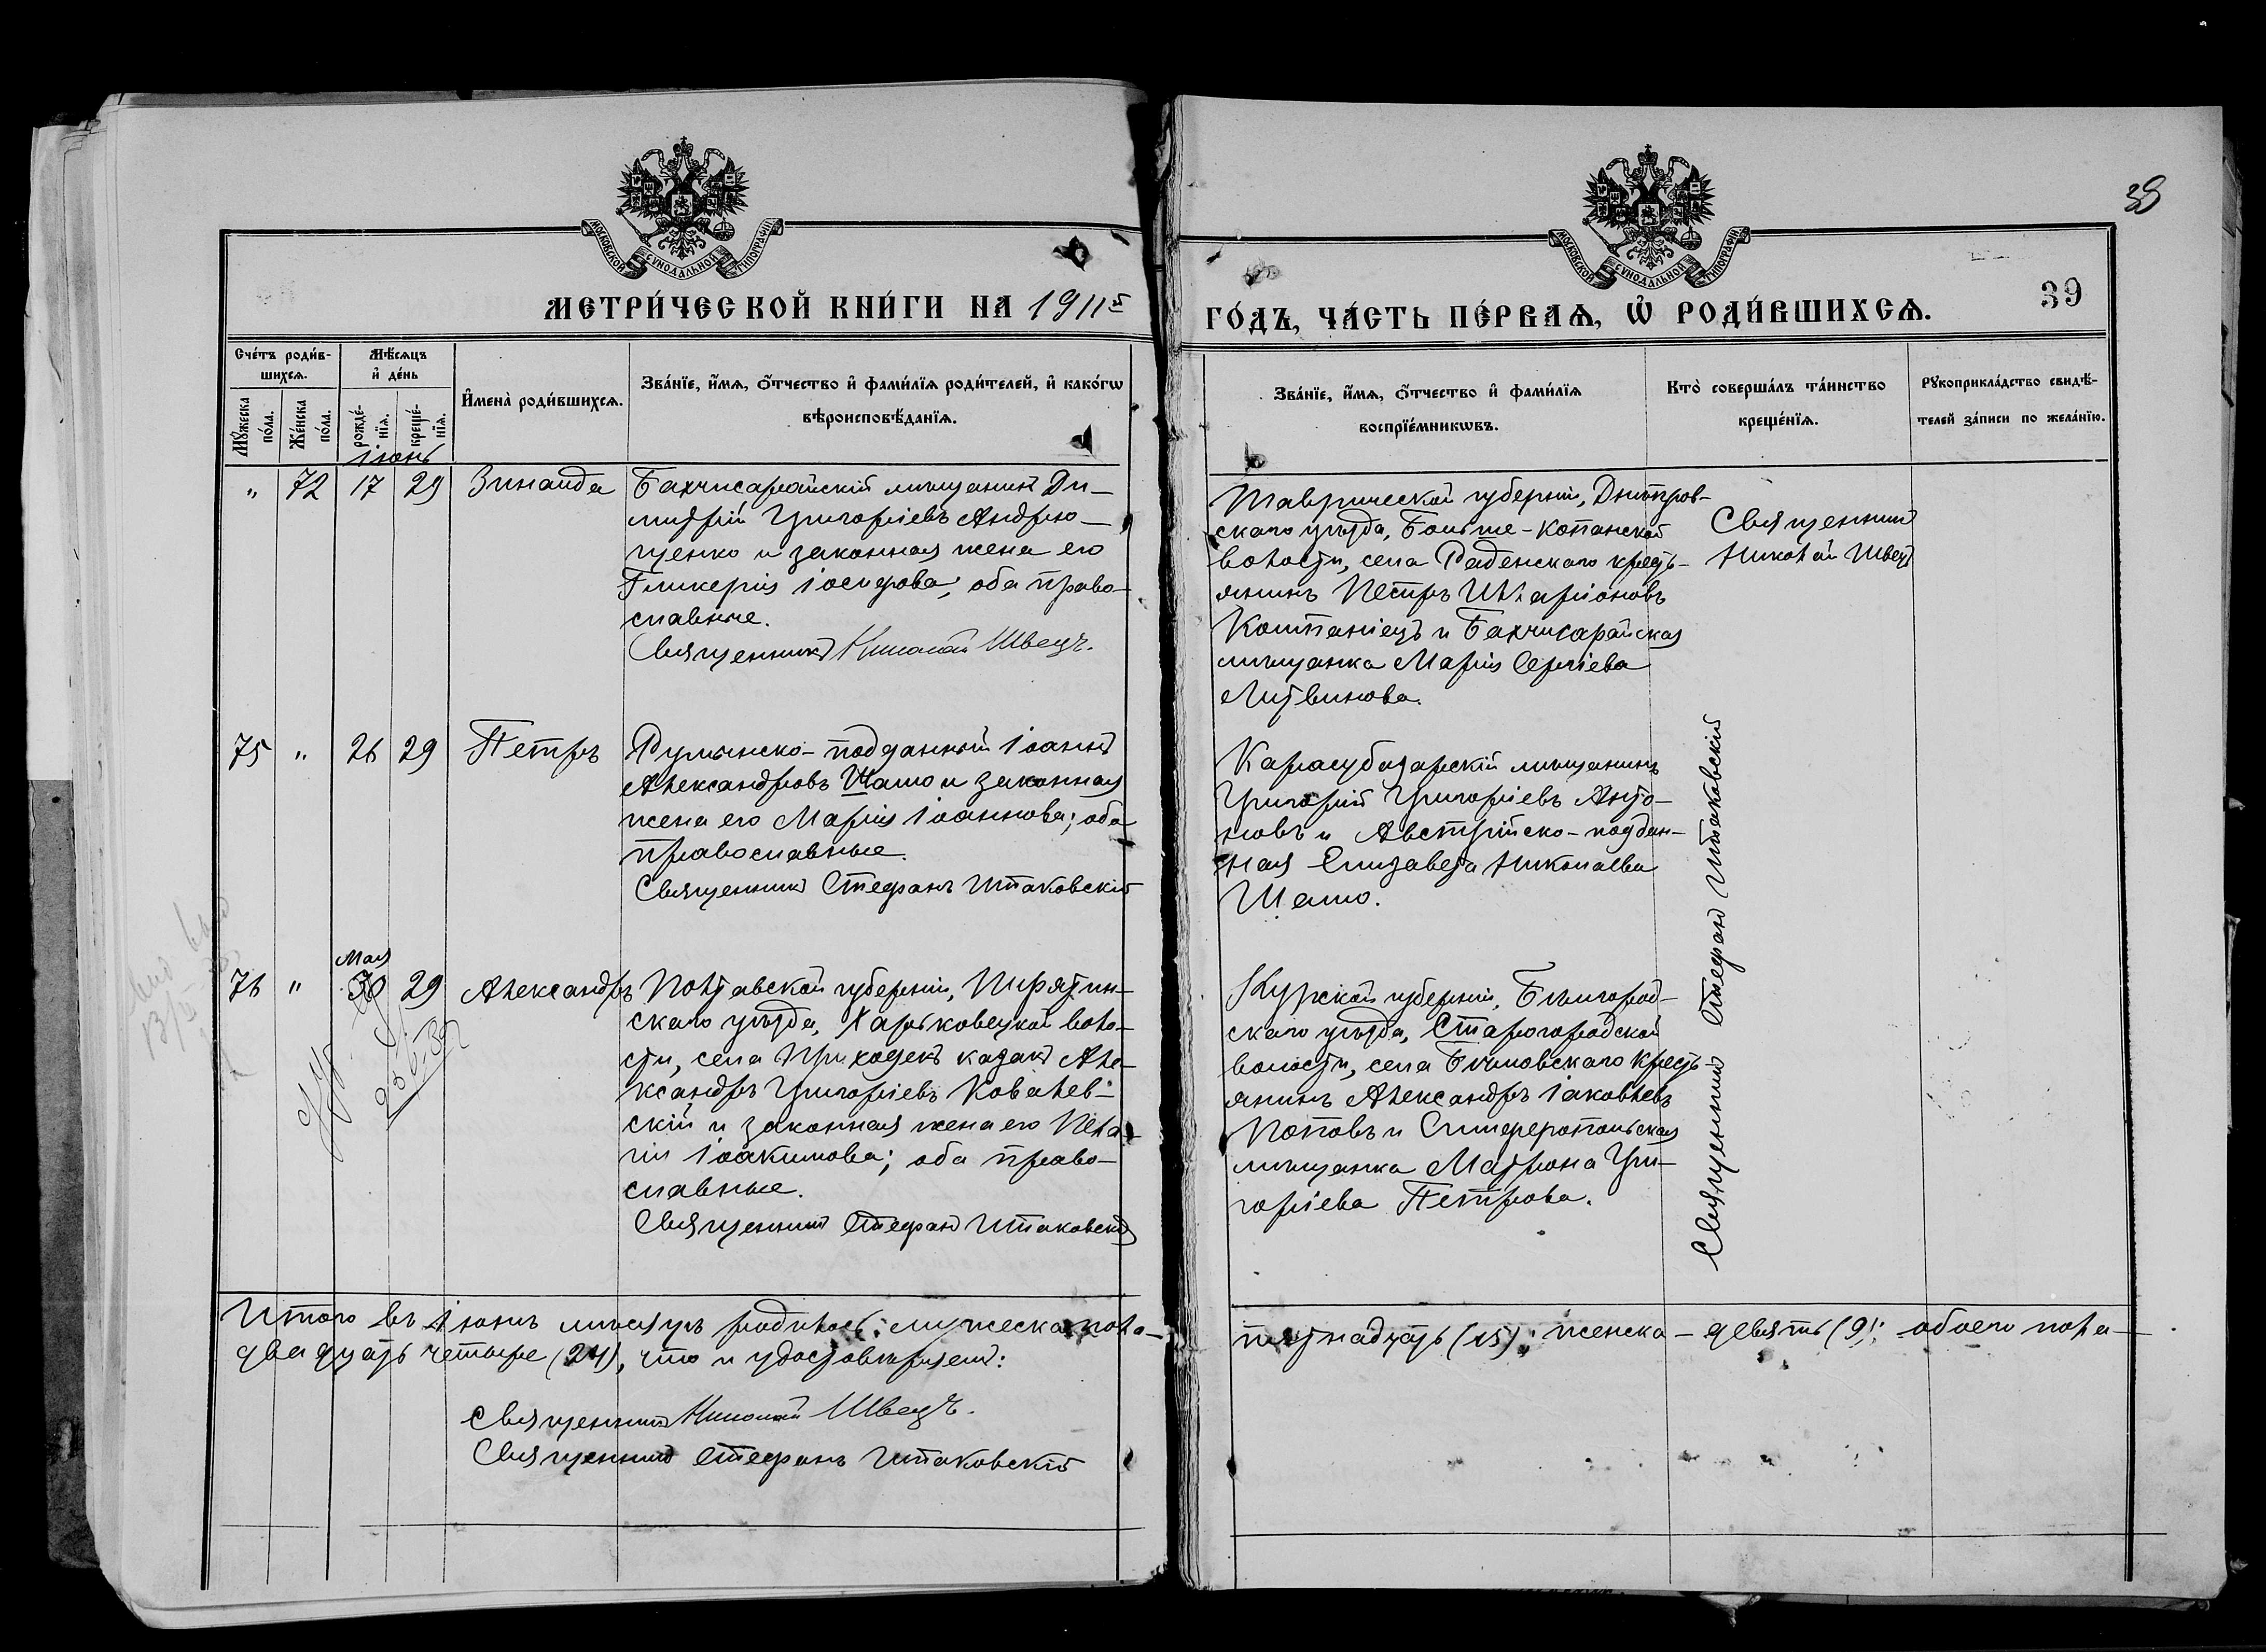 39
МОСКОВСКОЙ СУНОДАЛЬНОЙ ТИПОГРАФІИ
МОСКОВСКОЙ СУНОДАЛЬНОЙ ТИПОГРАФІИ
МЕТРИ́ЧЕСКОЙ КНИ́ГИ НА 1911й
ГО́ДЪ, ЧА́СТЬ ПЕ́РВАѦ, Ѿ РОДИ́ВШИХСѦ.
39
Сче́тъ роди́в-
шихсѧ.
Мꙋ́жеска по́ла.
Же́нска по́ла.
Мѣ́сѧцъ
и҆ де́нь
рожде́-
нїѧ.
креще́-
нїѧ.
И҆мена̀ роди́вшихсѧ.
Зва́нїе, и҆́мѧ, ѻ҆́тчество и҆ фами́лїѧ роди́телей, и҆ како́гѡ
вѣроисповѣ́данїѧ.
Зва́нїе, и҆́мѧ, ѻ҆́тчество и҆ фами́лїѧ
воспрїе́мникѡвъ.
Кто̀ соверша́лъ та́инство
креще́нїѧ.
Рꙋкоприкла́дство свидѣ́-
телей за́писи по жела́нїю.
Іюнь
" 72 17 29 Зинаида
Бахчисарайскій мѣщанинъ Ди-
митрій Григоріевъ Андрю-
щенко и законная жена его
Гликерія Іосифова; оба право-
славные.
Священникъ Николай Швецъ.
Таврической губерніи, Днѣпров-
скаго уѣзда, Больше-Копанской
волости, села Раденскаго кресть-
янинъ Петръ Илларіоновъ
Костанiецъ и Бахчисарайская
мѣщанка Марія Сергіева
Литвинова.
Священникъ
Николай Швецъ
75 " 26 29 Петръ
Румынско-подданный Іоаннъ
Александровъ Шамо и законная
жена его Марія Іоаннова; оба
православные.
Священникъ Стефанъ Итаковскій
Карасубазарскій мѣщанинъ
Григорій Григоріевъ Анто-
новъ и Австрійско-поддан-
ная Елизавета Николаева
Шамо.
Мая
76 " 30 29 Александръ
Полтавской губерніи, Пирятин-
скаго уѣзда, Харьковецкой воло-
сти, села Приходекъ казакъ Але-
ксандръ Григоріевъ Ковалев-
скій и законная жена его Пела-
гія Іоакимова; оба право-
славные.
Священникъ Стефанъ Итаковскій
Курской губерніи, Бѣлгород-
скаго уѣзда, Старогородской
волости, села Бѣловскаго кресть-
янинъ Александръ Іаковлевъ
Поповъ и Симферопольская
мѣщанка Матрона Гри-
горіева Петрова.
Священникъ Стефанъ Итаковскій
Итого въ Іюнѣ мѣсяцѣ родилось: мужеска пола-
пятнадцать (15); женска - девять (9); обоего пола-
двадцать четыре (24), что и удостовѣряемъ:
Священникъ Николай Швецъ.
Священникъ Стефанъ Итаковскій